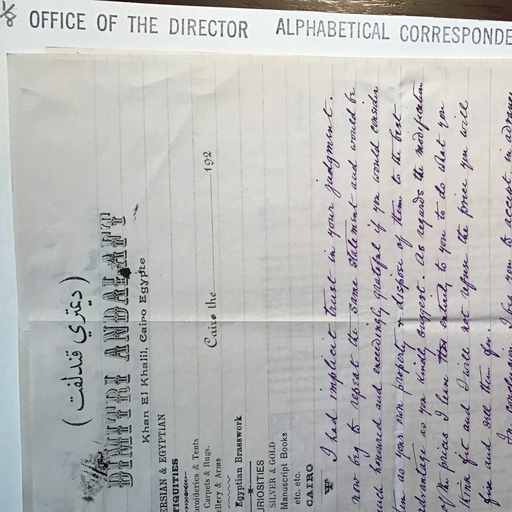 (ديمتري قندلفت)
DIMITRI ANDALAFT
Khan El Khalil, Cairo Egypte
ERSIAN & EGYPTIAN
TIQUITIES
broideries & Tents
Carpets & Rugs.
ellery & Arms
Egyptian Brasswork
URIOSITIES
SILVER & GOLD
Manuscript Books
etc. etc.
CAIRO
Cairo the 192
I had implicit trust in your judgment.
now beg to repeat the same statement and would be
uch honoured and exceedingly grateful if you would consider
em as your own property & dispose of them to the best
advantage as you kindly suggest. As regards the modification
of the prices I leave entirely to you to do what you
think fit and I will not refuse the price you will
fix and sell them for.
In conclusion I beg you to accept in advance
OFFICE OF THE DIRECTOR ALPHABETICAL CORRESPONDE